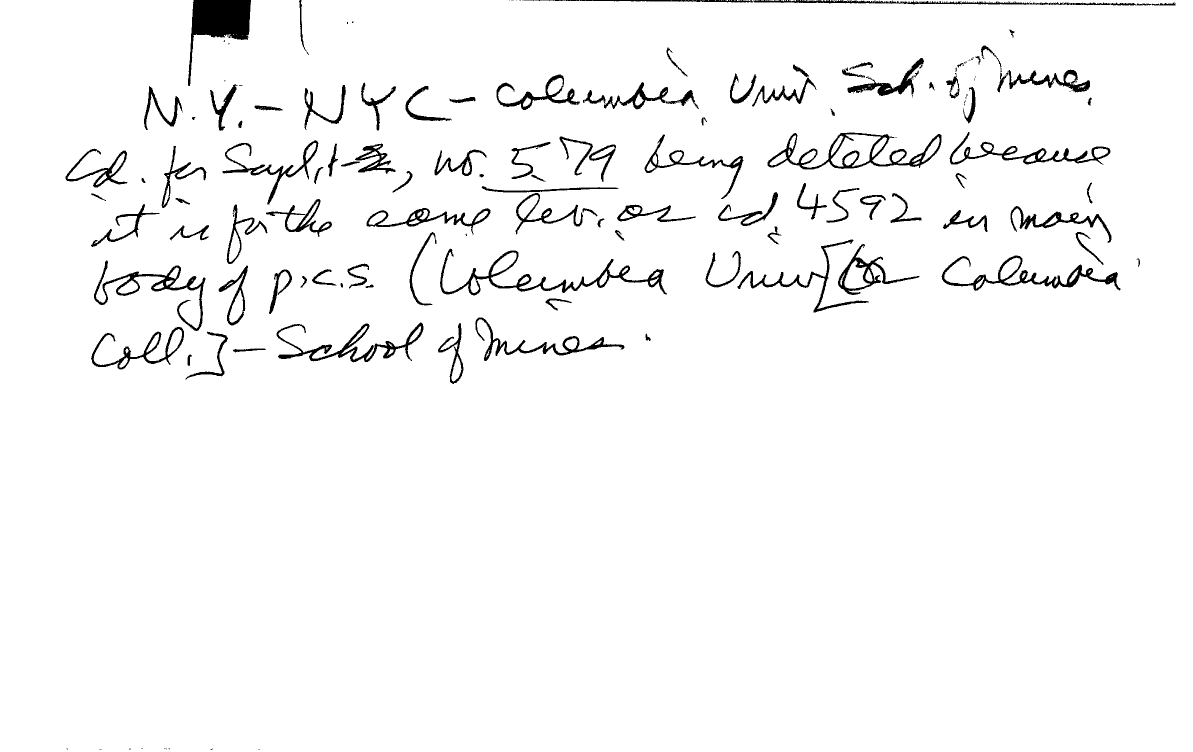 N.Y. – NYC – Columbia Univ. Sch. of Mines.
Cd. for Suppl., no. 579 being deleted because
it is for the same lev. as cd. 4592 in main
body of p.c.s. (Columbia Univ [or Columbia
Coll.] – School of Mines.